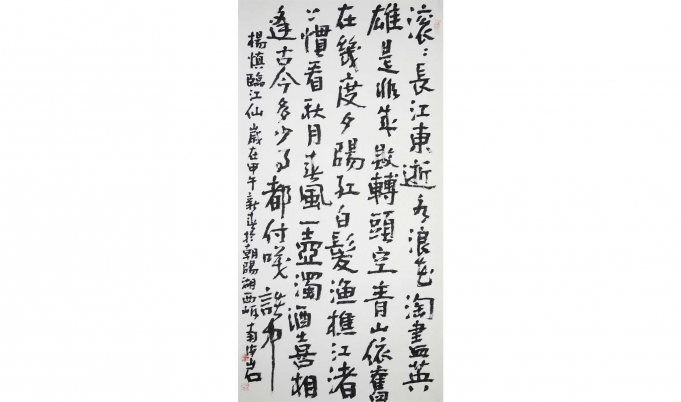 滚〻長江東逝水浪花淘盡英
雄是非成敗轉頭空青山依舊
在幾度夕陽紅白髮漁樵江渚
上慣看秋月春風一壺濁酒喜相
逢古今多少事都付笑談中
楊慎臨江仙歲在甲午新春於朝陽湖西